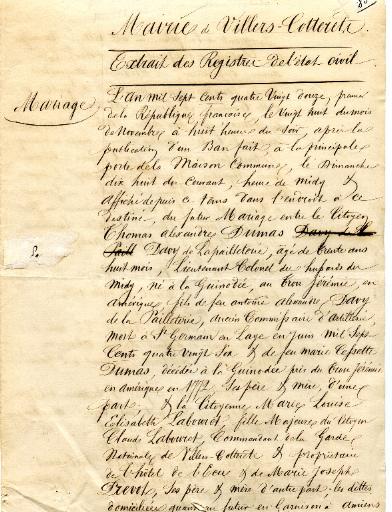 Mairie de Villers-Cotterêts.
Extrait des Registres de l'état civil.
Mariage
L'an mil sept cents quatre vingt douze, premier
de la République française, le vingt huit du mois
de Novembre à huit heures du Soir, après la
publication d'un Ban fait à la principale
porte de la Maison Commune, le Dimanche
dix huit du Courant, heure de midy &
affiché depuis ce tems dans l'endroit à ce
destiné, du futur Mariage entre le Citoyen
Thomas alexandre Dumas Davy de la
Paill Davy de Lapailleterie, âgé de trente ans
huit mois, Lieutenant Colonel des hussards du
Midy, né à la Guinodée, au Trou Jérémie, en
amérique, fils de feu antoine alexandre Davy
de la Pailleterie, ancien Commissaire d'artillerie
mort à St Germain en Laye en Juin mil Sept
Cents quatre vingt Six & de feu marie Cessette
Dumas, décédée à la Guinodée près du Trou Jérémie
en amérique en 1772 Ses père & mère, d'une
part. & la Citoyenne Marie Louise
Elisabeth Labouret, fille Majeure du Citoyen
Claude Labouret, Commandant de la Garde
Nationale de Villers-Cotterêts & propriétaire
de l'hôtel de l'Ecu & de Marie Joseph
Prevot, Ses père & mère d'autre part; les dittes
domiciliées quant au futur en Garnison à Amiens